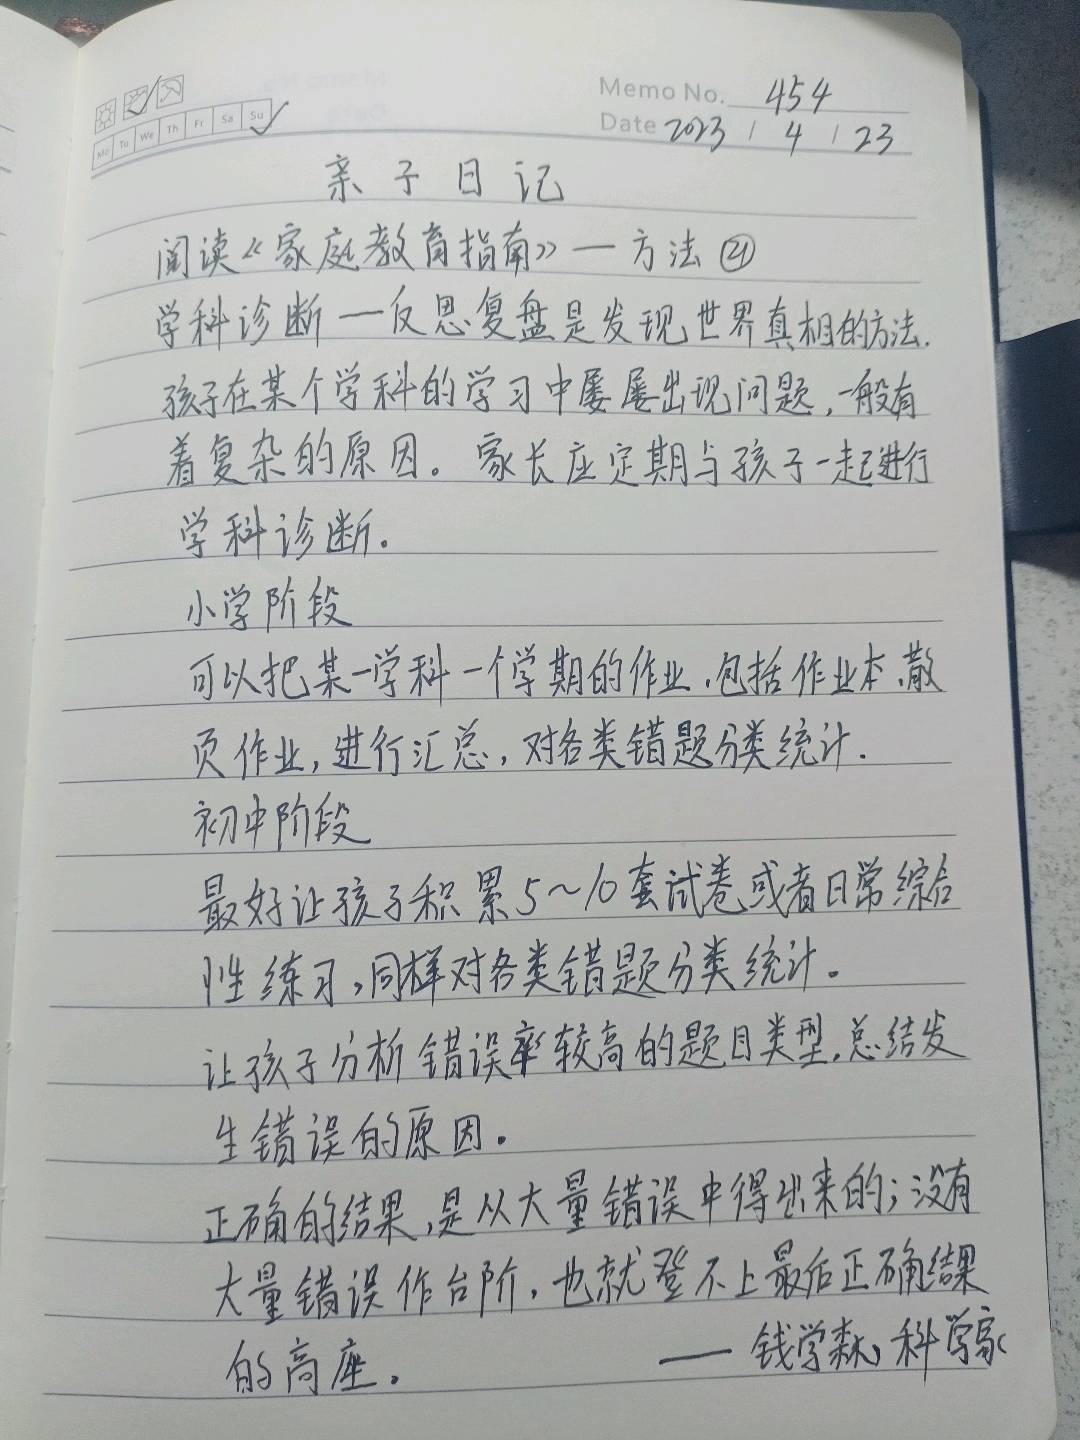 Memo No. 454
Mo Tu We Th Fr Sa Su
Date 2023 / 4 / 23
亲子日记
阅读《家庭教育指南》—方法㉑
学科诊断—反思复盘是发现世界真相的方法.
孩子在某个学科的学习中屡屡出现问题,一般有
着复杂的原因。家长应定期与孩子一起进行
学科诊断.
小学阶段
可以把某一学科一个学期的作业,包括作业本、散
页作业,进行汇总,对各类错题分类统计.
初中阶段
最好让孩子积累5~10套试卷或者日常综合
性练习,同样对各类错题分类统计。
让孩子分析错误率较高的题目类型,总结发
生错误的原因。
正确的结果,是从大量错误中得出来的;没有
大量错误作台阶,也就登不上最后正确结果
的高座. ——钱学森,科学家